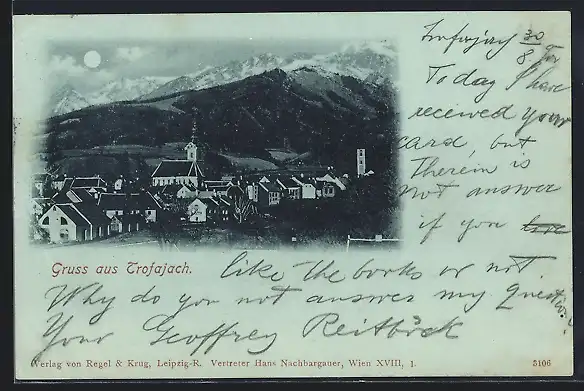 Trofajach 30/8
Today I have
received your
card, but
Therein is
not answer
if you
like the books or not.
Why do you not answer my question?
Your Geoffrey Reitböck
Gruss aus Trofajach.
Verlag von Regel & Krug, Leipzig-R. Vertreter Hans Nachbargauer, Wien XVIII, 1.
5106